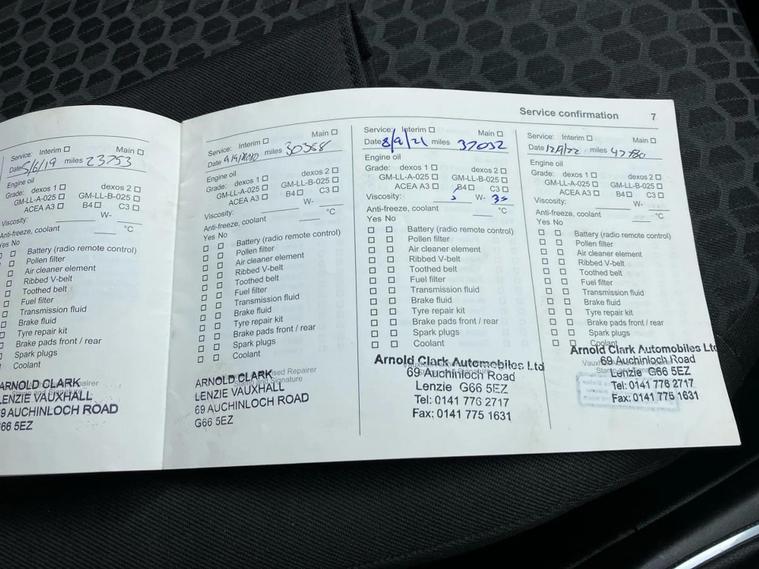 Service confirmation 7
Service: Interim ☐ Main ☐
Date 5/6/19 miles 23753
Engine oil
Grade: dexos 1 ☐ dexos 2 ☐
GM-LL-A-025 ☐ GM-LL-B-025 ☐
ACEA A3 ☐ B4 ☐ C3 ☐
Viscosity: W-
Anti-freeze, coolant °C
Yes No
☐ ☐ Battery (radio remote control)
☐ ☐ Pollen filter
☐ ☐ Air cleaner element
☐ ☐ Ribbed V-belt
☐ Toothed belt
☐ Fuel filter
☐ Transmission fluid
Brake fluid
Tyre repair kit
Brake pads front / rear
Spark plugs
Coolant
ARNOLD CLARK
LENZIE VAUXHALL
69 AUCHINLOCH ROAD
G66 5EZ
Service: Interim ☐ Main ☐
Date miles
Engine oil
Grade: dexos 1 ☐ dexos 2 ☐
GM-LL-A-025 ☐ GM-LL-B-025 ☐
ACEA A3 ☐ B4 ☐ C3 ☐
Viscosity: W-
Anti-freeze, coolant °C
Yes No
☐ ☐ Battery (radio remote control)
☐ ☐ Pollen filter
☐ ☐ Air cleaner element
☐ ☐ Ribbed V-belt
☐ ☐ Toothed belt
☐ ☐ Fuel filter
☐ ☐ Transmission fluid
☐ ☐ Brake fluid
☐ ☐ Tyre repair kit
☐ ☐ Brake pads front / rear
☐ ☐ Spark plugs
☐ ☐ Coolant
ARNOLD CLARK
LENZIE VAUXHALL
69 AUCHINLOCH ROAD
G66 5EZ
Service: Interim ☐ Main ☐
Date 8/9/21 miles 37052
Engine oil
Grade: dexos 1 ☐ dexos 2 ☐
GM-LL-A-025 ☐ GM-LL-B-025 ☐
ACEA A3 ☐ B4 ☐ C3 ☐
Viscosity: W- 30
Anti-freeze, coolant °C
Yes No
☐ ☐ Battery (radio remote control)
☐ ☐ Pollen filter
☐ ☐ Air cleaner element
☐ ☐ Ribbed V-belt
☐ ☐ Toothed belt
☐ ☐ Fuel filter
☐ ☐ Transmission fluid
☐ ☐ Brake fluid
☐ ☐ Tyre repair kit
☐ ☐ Brake pads front / rear
☐ ☐ Spark plugs
☐ ☐ Coolant
Arnold Clark Automobiles Ltd
69 Auchinloch Road
Lenzie G66 5EZ
Tel: 0141 776 2717
Fax: 0141 775 1631
Service: Interim ☐ Main ☐
Date miles
Engine oil
Grade: dexos 1 ☐ dexos 2 ☐
GM-LL-A-025 ☐ GM-LL-B-025 ☐
ACEA A3 ☐ B4 ☐ C3 ☐
Viscosity: W-
Anti-freeze, coolant °C
Yes No
☐ ☐ Battery (radio remote control)
☐ ☐ Pollen filter
☐ ☐ Air cleaner element
☐ ☐ Ribbed V-belt
☐ ☐ Toothed belt
☐ ☐ Fuel filter
☐ ☐ Transmission fluid
☐ ☐ Brake fluid
☐ ☐ Tyre repair kit
☐ ☐ Brake pads front / rear
☐ ☐ Spark plugs
☐ ☐ Coolant
Arnold Clark Automobiles Ltd
69 Auchinloch Road
Lenzie G66 5EZ
Tel: 0141 776 2717
Fax: 0141 775 1631